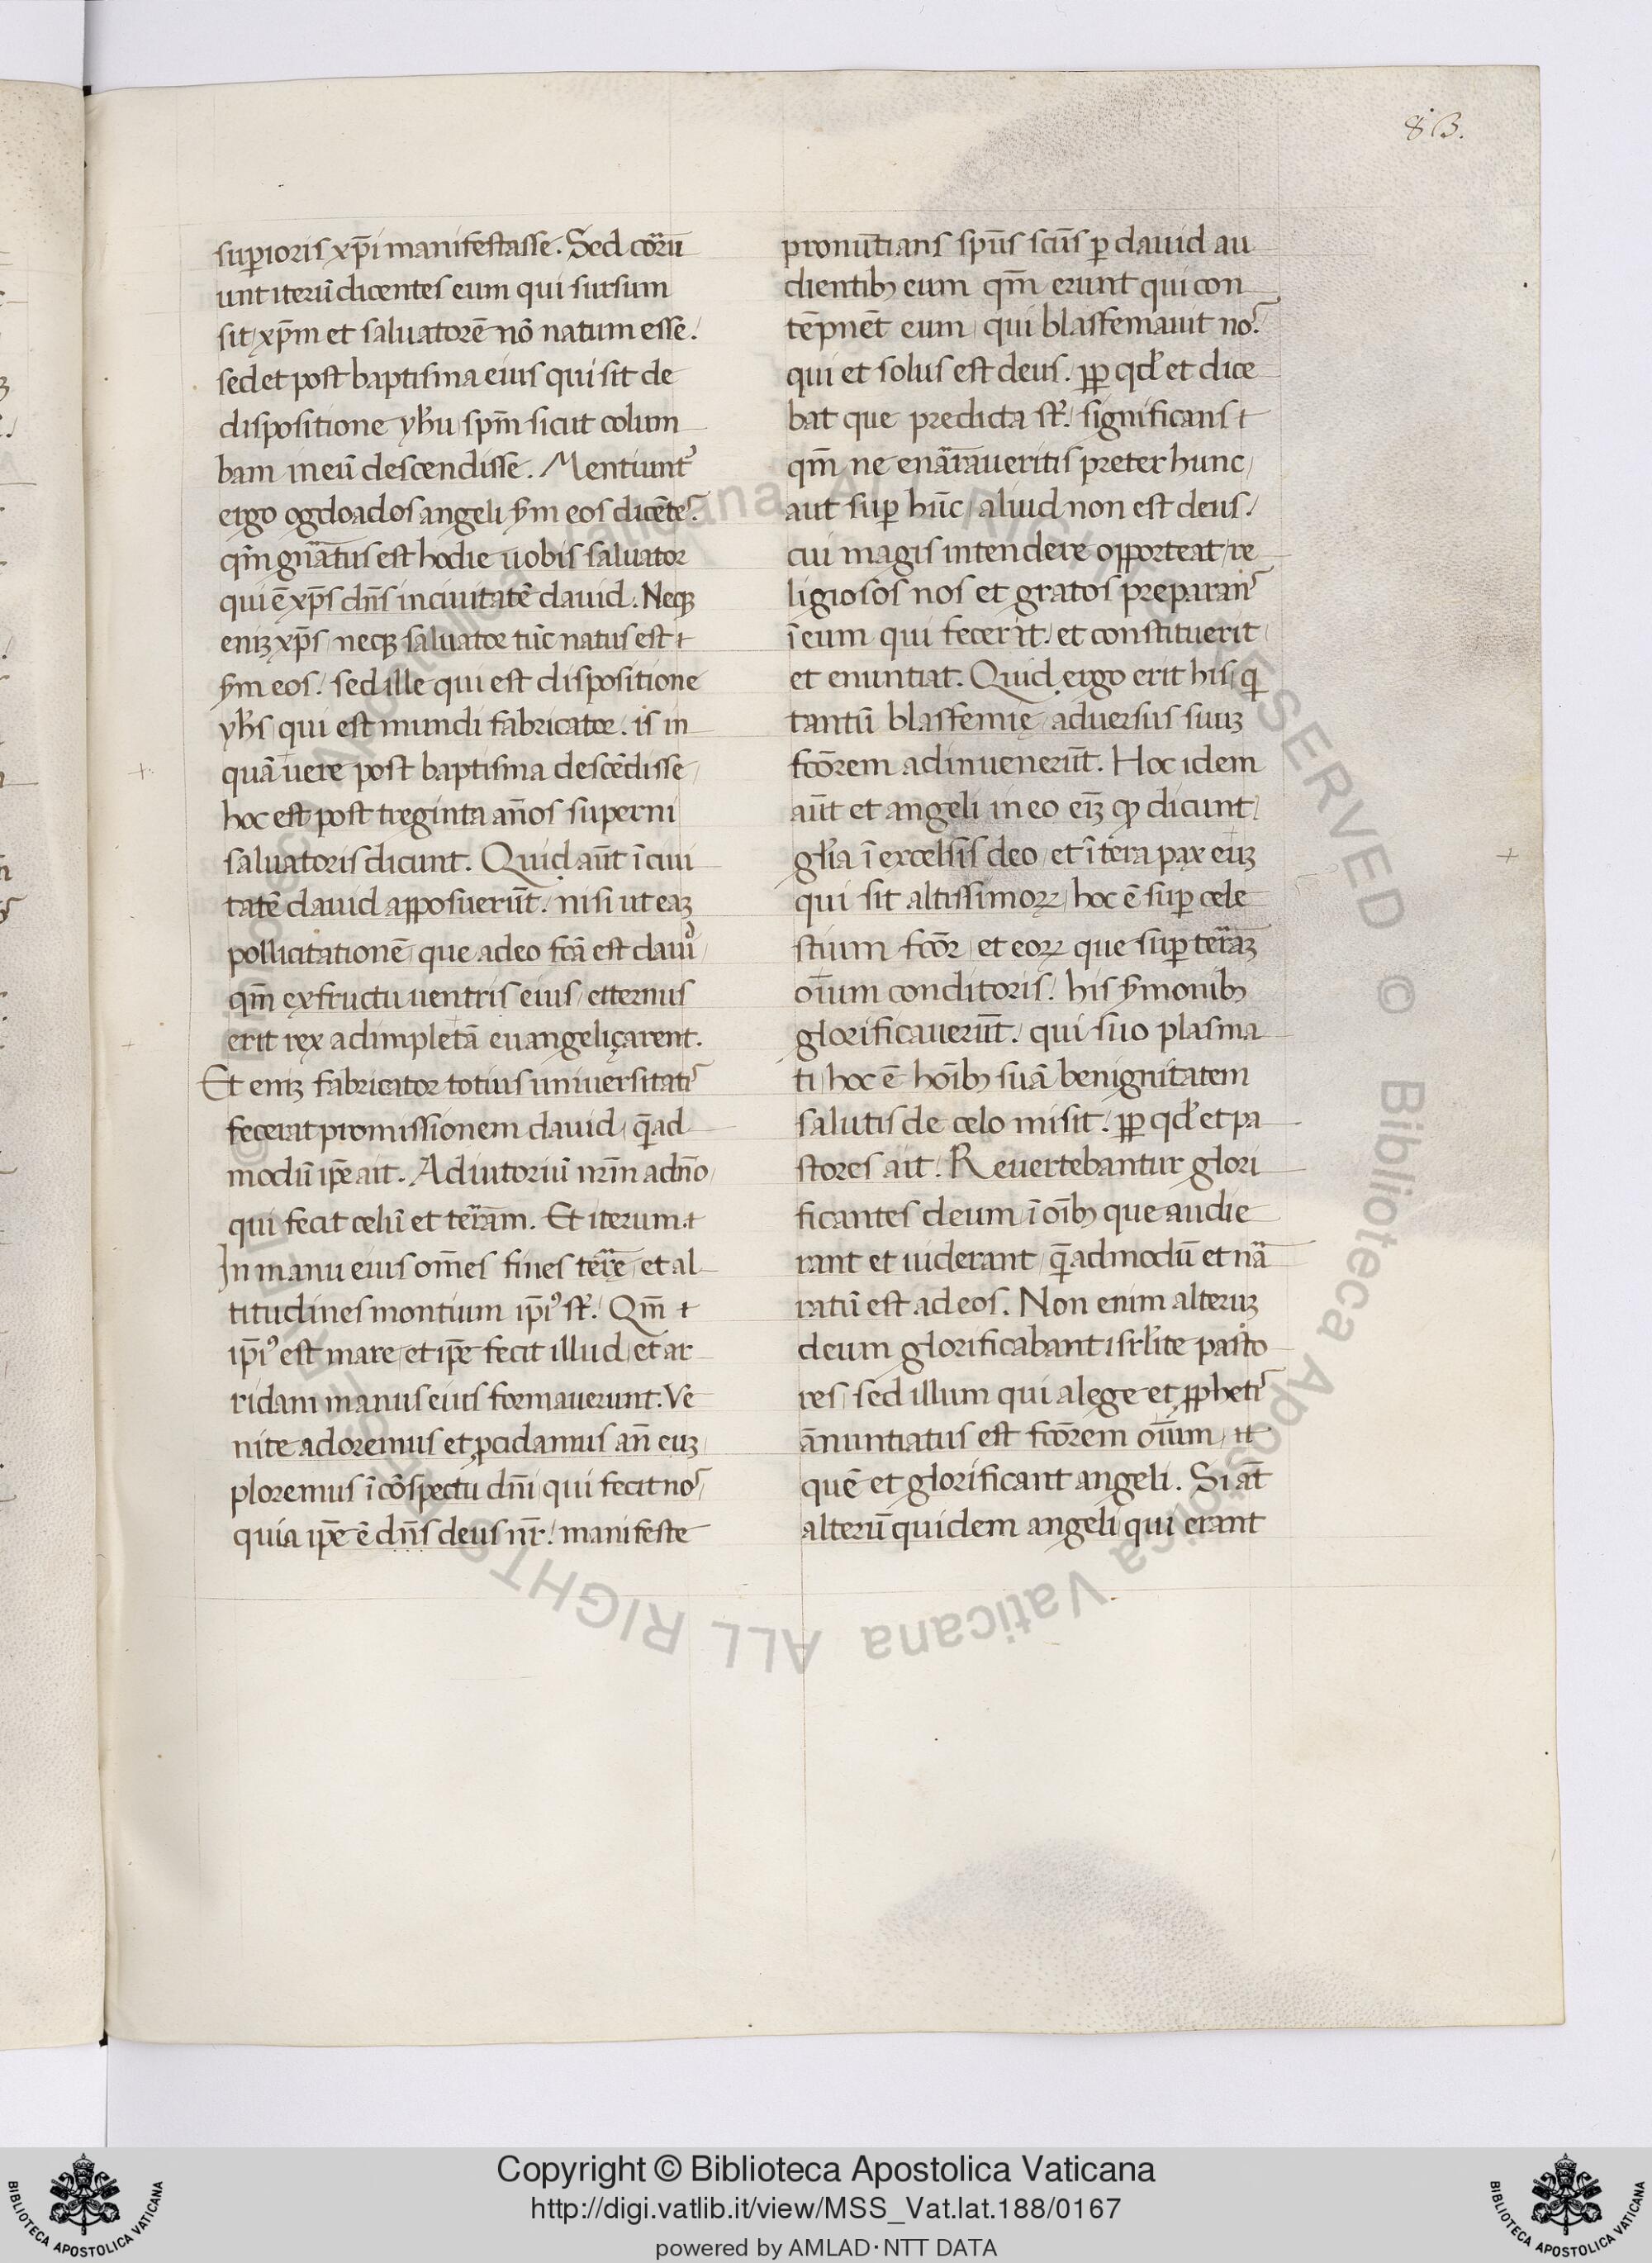 83.
suꝑioris xp̄i manifestasse. Sed cor̄ru
unt iterū dicentes eum qui sursum
sit / xp̄m et saluatorē nō natum esse /
sed et post baptisma eius qui sit de
dispositione yhu / spm̄ sicut colum
bam in eū descendisse. Mentiunt᷑
ergo ogdoados angeli s̄m eos dicēte᷑
qm̄ gnātus est hodie uobis saluator
qui ē xp̄s dn̄s in ciuitatē dauid. Neqꝫ
enīꝫ xp̄s / neqꝫ saluator tūc natus est t
s̄m eos / sed ille qui est dispositione
yhs / qui est mundi fabricator. is in
quā uere post baptisma descēdisse /
hoc est post treginta an̄os superni
saluatoris dicunt. Quid aūt ī ciui
tatē dauid apposuerūt / nisi ut eaꝫ
pollicitationē que a deo fcā est dauid /
qm̄ ex fructu uentris eius / etternus
erit rex adimpletā euangeliçarent.
Et enīꝫ fabricator totius uniuersitatis
fecerat promissionem dauid / qēad
modū ip̄e ait. Adiutoriū nrm̄ a dn̄o /
qui fecit celū et ter̄ram. Et iterum t
In manu eius om̄es fines ter̄re / et al
titudines montium ip̄i᷒ st᷑ / Qm̄ t
ip̄i᷒ est mare / et ip̄e fecit illud / et ar
ridam manus eius formauerunt. Ve
nite adoremus et ꝓcidamus an̄ euꝫ /
ploremus ī cōspectu dn̄i / qui fecit no᷑ /
quia ip̄e ē dn̄s deus nr̄ / manifeste
pronuntians spūs scūs ꝑ dauid au
dientibꝫ eum qm̄ erunt qui con
tēpnēt eum / qui blasfemauit no᷑ /
qui et solus est deus. ꝓp qd' et dice
bat que predicta st᷑ / significans t
qm̄ ne enār̄raueritis preter hunc /
aut suꝑ hūc / aluid non est deus /
cui magis intendere opporteat / re
ligiosos nos et gratos preparan᷑
ī eum qui fecerit / et constituerit /
et enuntiat. Quid ergo erit his / q̄
tantū blasfemię / aduersus suuꝫ
fcōrem adinuenerūt. Hoc idem
aūt et angeli in eo eīꝫ ꝙ dicunt /
glīa ī excelsis deo / et ī tera pax euꝫ
qui sit altissimoꝝ / hoc ē suꝑ cele
stium fcōr / et eoꝝ que suꝑ ter̄raꝫ
oīum conditoris / his s̄monibꝫ
glorificauerūt / qui suo plasma
ti / hoc ē hoībꝫ suā benignitatem
salutis de celo misit. ꝓp qd' et pa
stores ait / Reuertebantur glori
ficantes deum ī oībꝫ que audie
rant et uiderant / qēadmodū et nā
ratū est ad eos. Non enim alteruꝫ
deum glorificabant isrlite pasto
res / sed illum qui a lege et ꝓpheti᷑
ānuntiatus est fcōrem oīum / tt
quē et glorificant angeli. Si at̄
alterū quidem angeli / qui erant
Copyright © Biblioteca Apostolica Vaticana
http://digi.vatlib.it/view/MSS_Vat.lat.188/0167
powered by AMLAD·NTT DATA
BIBLIOTECA APOSTOLICA VATICANA
BIBLIOTECA APOSTOLICA VATICANA